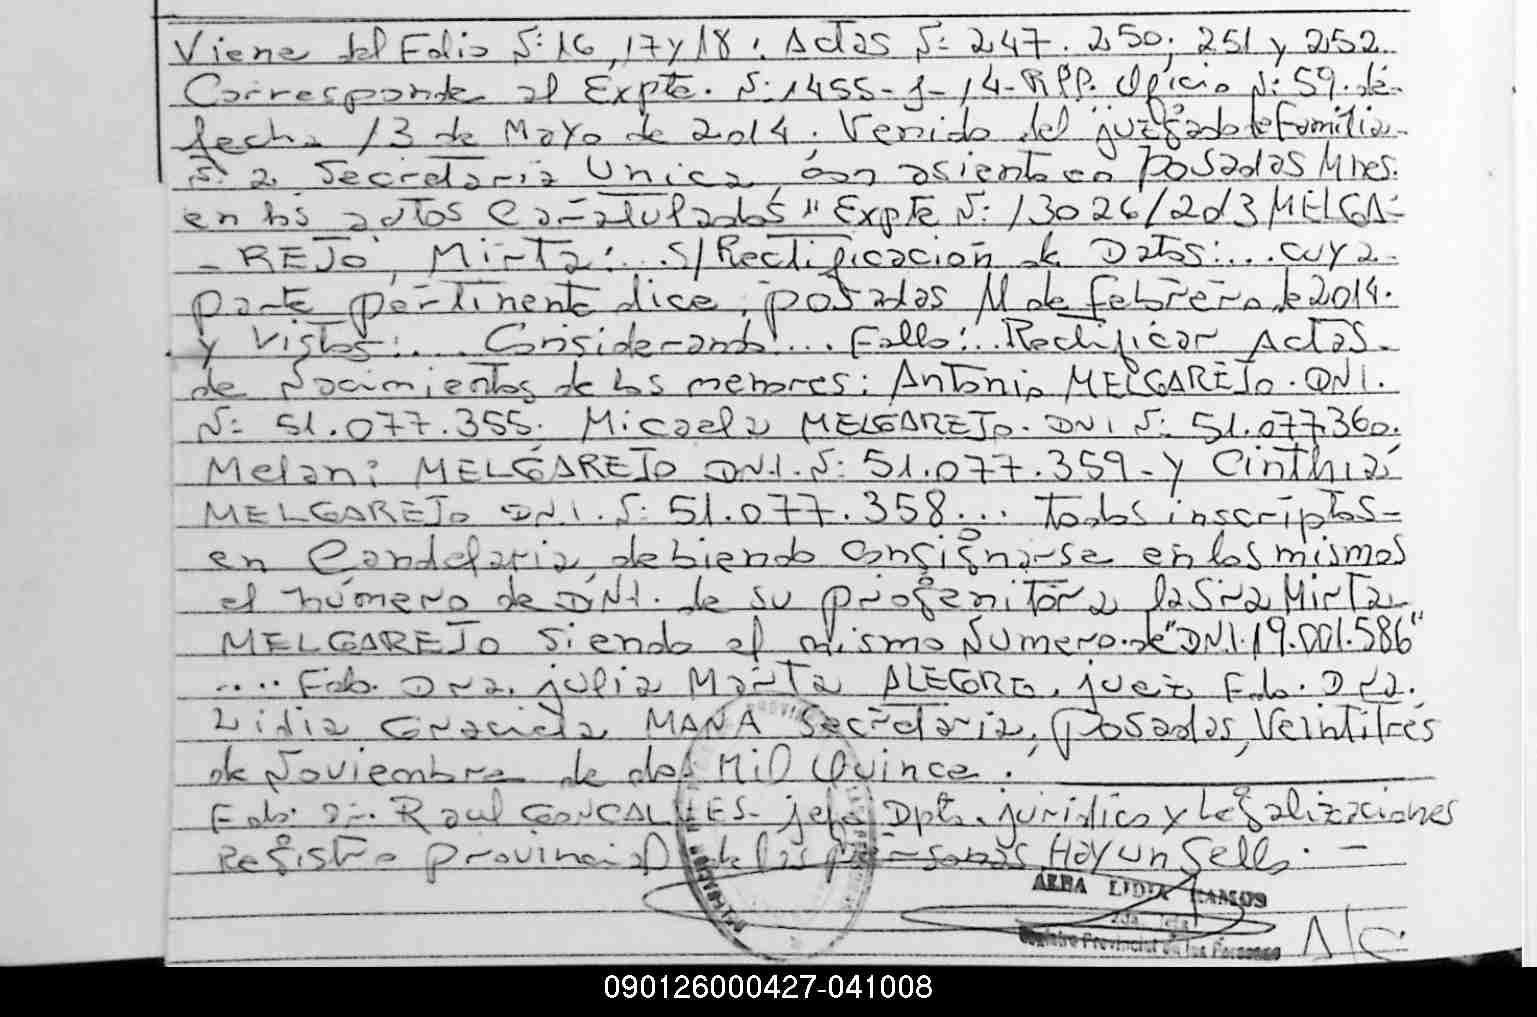 Viene del Folio N: 16, 17 y 18. Actas N: 247. 250. 251 y 252.
Corresponde al Expte. N: 1455-J-14-RPP. Oficio N: 59. de
fecha 13 de Mayo de 2014. Venido del juzgado de Familia
N: 2, Secretaria Unica, con asiento en Posadas Mnes.
en los autos Caratulados "Expte N: 13026/2013 MELGA-
- REJO, Mirta:... S/Rectificación de Datos:... cuya
parte pertinente dice, posadas 11 de febrero de 2014.
y Vistos:.... Considerando... Fallo:.. Rectificar Actas
de Nacimientos de los menores: Antonio MELGAREJO. DNI.
N: 51.077.355. Micaela MELGAREJO. DNI N: 51.077.360.
Melani MELGAREJO DN.I. N: 51.077.359- y Cinthia
MELGAREJO DN.I. N: 51.077.358... Todos inscriptos-
en Candelaria, debiendo consignarse en los mismos
el número de DNI. de su progenitora la Sra Mirta
MELGAREJO siendo el mismo Numero de "DNI.19.001.586"
.... Fdo. Dra. julia Marta ALEGRE. juez Fdo. Dra.
Lidia Graciela MANA Secretaria, Posadas, Veintitrés
de Noviembre de dos Mil Quince.
Fdo. Dr. Raul GONCALVES- jefe Dpto. juridico y Legalizaciones
Registro provincial de las personas, Hay un Sello. -
ALBA LIDIA RAMOS
2da. Jefa
Registro Provincial de las Personas
A/C.
090126000427-041008